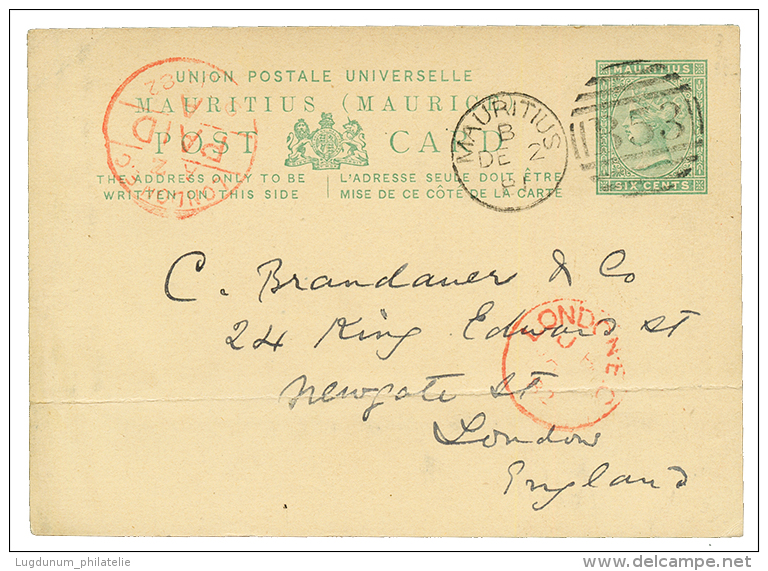 UNION POSTALE UNIVERSELLE
MAURITIUS (MAURICE)
POST CARD
THE ADDRESS ONLY TO BE WRITTEN ON THIS SIDE
L'ADRESSE SEULE DOIT ÊTRE MISE DE CE CÔTÉ DE LA CARTE
MAURITIUS
B
DE 2
81
B53
MAURITIUS
SIX CENTS
PAID
LONDON E.C
82
C. Brandauer & Co
24 King Edward St
Newgate St
London
England
LONDON E.C
Lugdunum_philatelie
delcampe.net